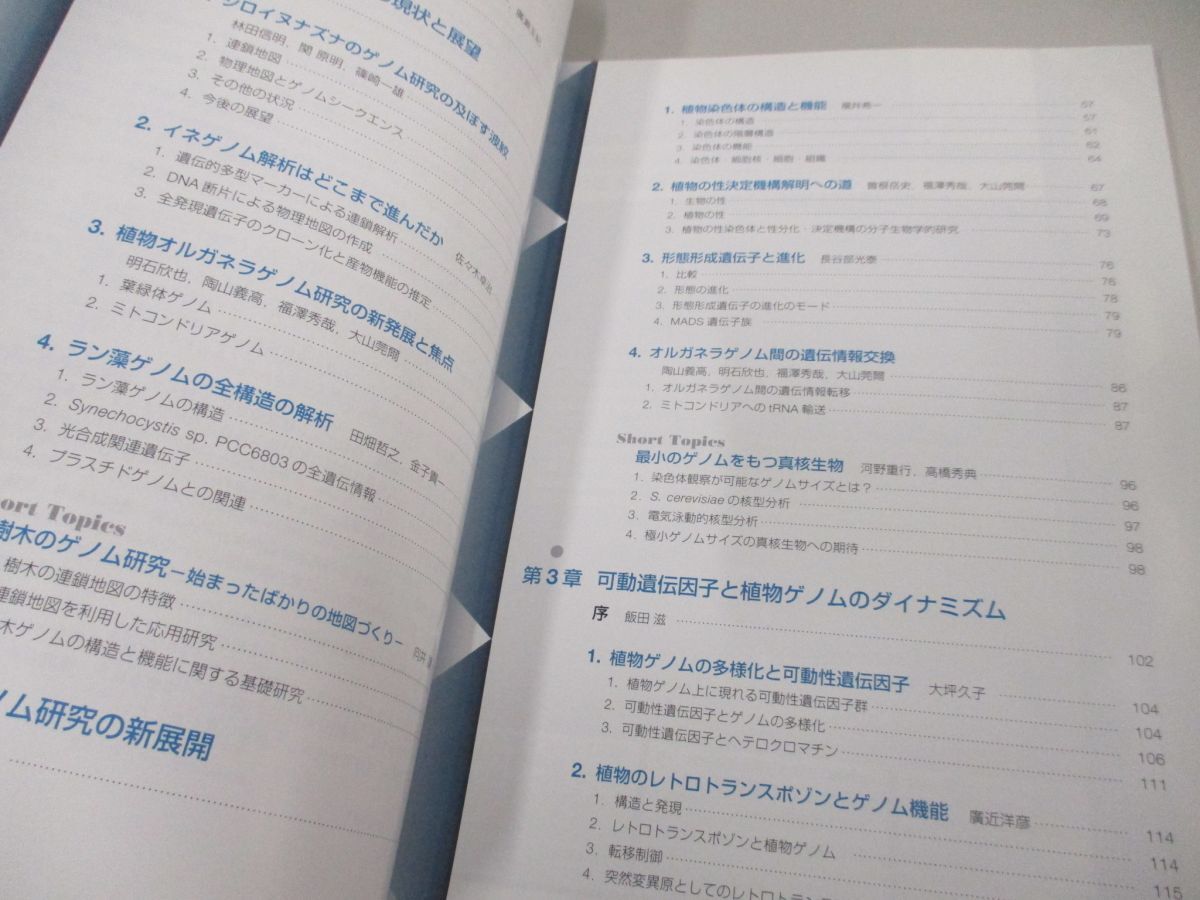 現状と展望
シロイヌナズナのゲノム研究の及ぼす波紋
林田信明，関 原明，篠崎一雄
1. 連鎖地図
2. 物理地図とゲノムシークエンス
3. その他の状況
4. 今後の展望
2. イネゲノム解析はどこまで進んだか 佐々木卓治
1. 遺伝的多型マーカーによる連鎖解析
2. DNA断片による物理地図の作成
3. 全発現遺伝子のクローン化と産物機能の推定
3. 植物オルガネラゲノム研究の新発展と焦点
明石欣也，陶山義高，福澤秀哉，大山莞爾
1. 葉緑体ゲノム
2. ミトコンドリアゲノム
4. ラン藻ゲノムの全構造の解析 田畑哲之，金子貴一
1. ラン藻ゲノムの構造
2. Synechocystis sp. PCC6803の全遺伝情報
3. 光合成関連遺伝子
4. プラスチドゲノムとの関連
ort Topics
樹木のゲノム研究－始まったばかりの地図づくり－ 向井
樹木の連鎖地図の特徴
連鎖地図を利用した応用研究
木ゲノムの構造と機能に関する基礎研究
ム研究の新展開
1. 植物染色体の構造と機能 57
1. 染色体の構造 57
2. 染色体の階層構造 61
3. 染色体の機能 62
4. 染色体・細胞核・細胞・組織 64
2. 植物の性決定機構解明への道 曽根岳史，福澤秀哉，大山莞爾 67
1. 生物の性 68
2. 植物の性 69
3. 植物の性染色体と性分化・決定機構の分子生物学的研究 73
3. 形態形成遺伝子と進化 長谷部光泰 76
1. 比較 76
2. 形態の進化 78
3. 形態形成遺伝子の進化のモード 79
4. MADS遺伝子族 79
4. オルガネラゲノム間の遺伝情報交換
陶山義高，明石欣也，福澤秀哉，大山莞爾 86
1. オルガネラゲノム間の遺伝情報転移 87
2. ミトコンドリアへのtRNA輸送 87
Short Topics
最小のゲノムをもつ真核生物 河野重行，高橋秀典 96
1. 染色体観察が可能なゲノムサイズとは？ 96
2. S. cerevisiaeの核型分析 97
3. 電気泳動的核型分析 98
4. 極小ゲノムサイズの真核生物への期待 98
第3章 可動遺伝因子と植物ゲノムのダイナミズム
序 飯田 滋 102
1. 植物ゲノムの多様化と可動性遺伝因子 大坪久子 104
1. 植物ゲノム上に現れる可動性遺伝因子群 104
2. 可動性遺伝因子とゲノムの多様化 106
3. 可動性遺伝因子とヘテロクロマチン 111
2. 植物のレトロトランスポゾンとゲノム機能 廣近洋彦 114
1. 構造と発現 114
2. レトロトランスポゾンと植物ゲノム 115
3. 転移制御
4. 突然変異原としてのレトロトランス